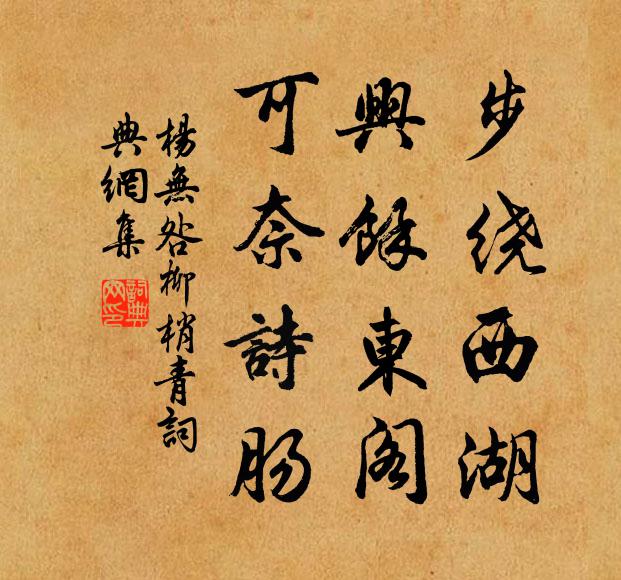 步绕西湖
興餘東閣
可奈詩肠
楊無咎柳梢青詞
典網集
詞典網印